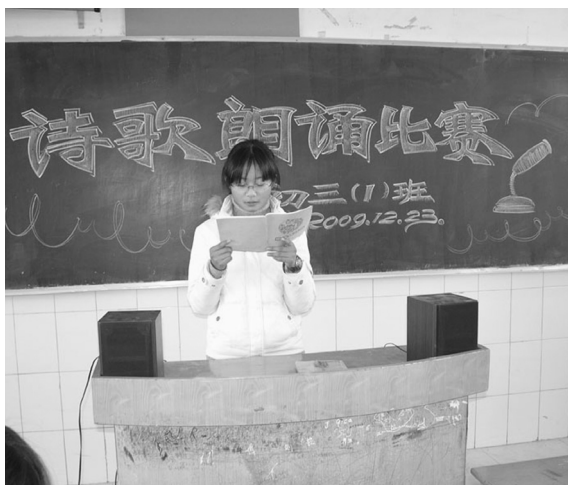 诗歌朗诵比赛
初三(1)班
2009.12.23.